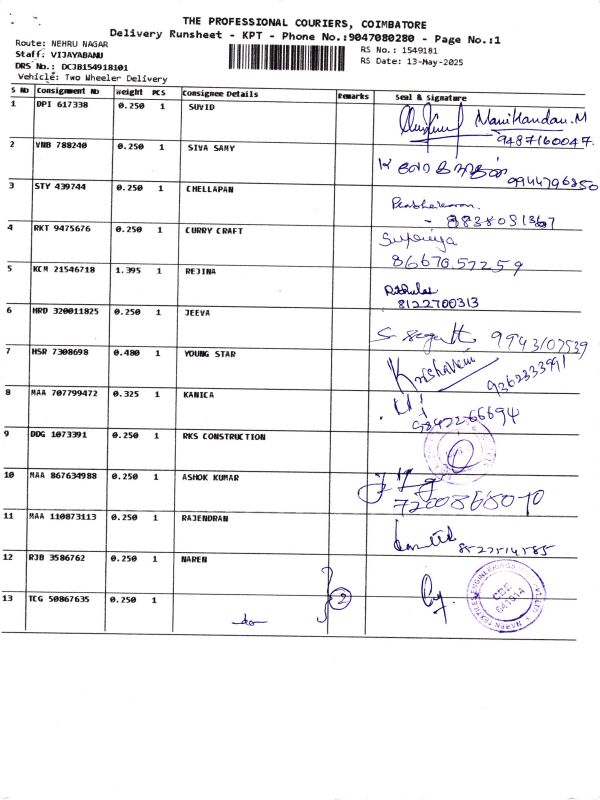 THE PROFESSIONAL COURIERS, COIMBATORE
Delivery Runsheet - KPT - Phone No.:9047080280 - Page No.:1
Route: NEHRU NAGAR
Staff: VIJAYABANU
DRS No.: DCJB154918101
Vehicle: Two Wheeler Delivery
RS No.: 1549181
RS Date: 13-May-2025
S No Consignment No Weight PCS Consignee Details Remarks Seal & Signature
1 DPI 617338 0.250 1 SUVID Manikandan.M
9487160047.
2 VNB 788240 0.250 1 SIVA SAMY
9944796350
3 STY 439744 0.250 1 CHELLAPAN Prabhakaran
- 8838091367
4 RKT 9475676 0.250 1 CURRY CRAFT Supriya
8667057259
5 KCM 21546718 1.395 1 REJINA
8122700313
6 HRD 320011825 0.250 1 JEEVA 9943107539
7 HSR 7308698 0.480 1 YOUNG STAR Krishaveni
9362333991
8 MAA 707799472 0.325 1 KANICA
9842266694
9 DDG 1073391 0.250 1 RKS CONSTRUCTION
10 MAA 867634988 0.250 1 ASHOK KUMAR
7200868070
11 MAA 110873113 0.250 1 RAJENDRAN
8527514585
12 RJB 3586762 0.250 1 NAREN
2
CBE
641014
13 TCG 50867635 0.250 1 do